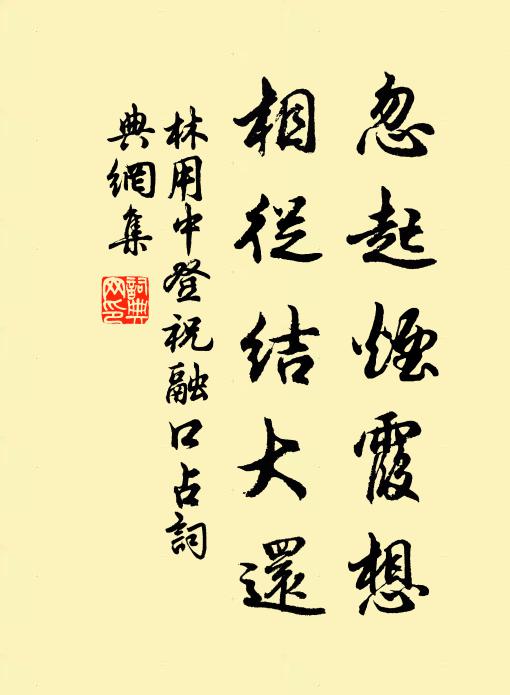 忽起煙霞想
相從結大還
林用中登祝融口占詞
典網集
詞典网印